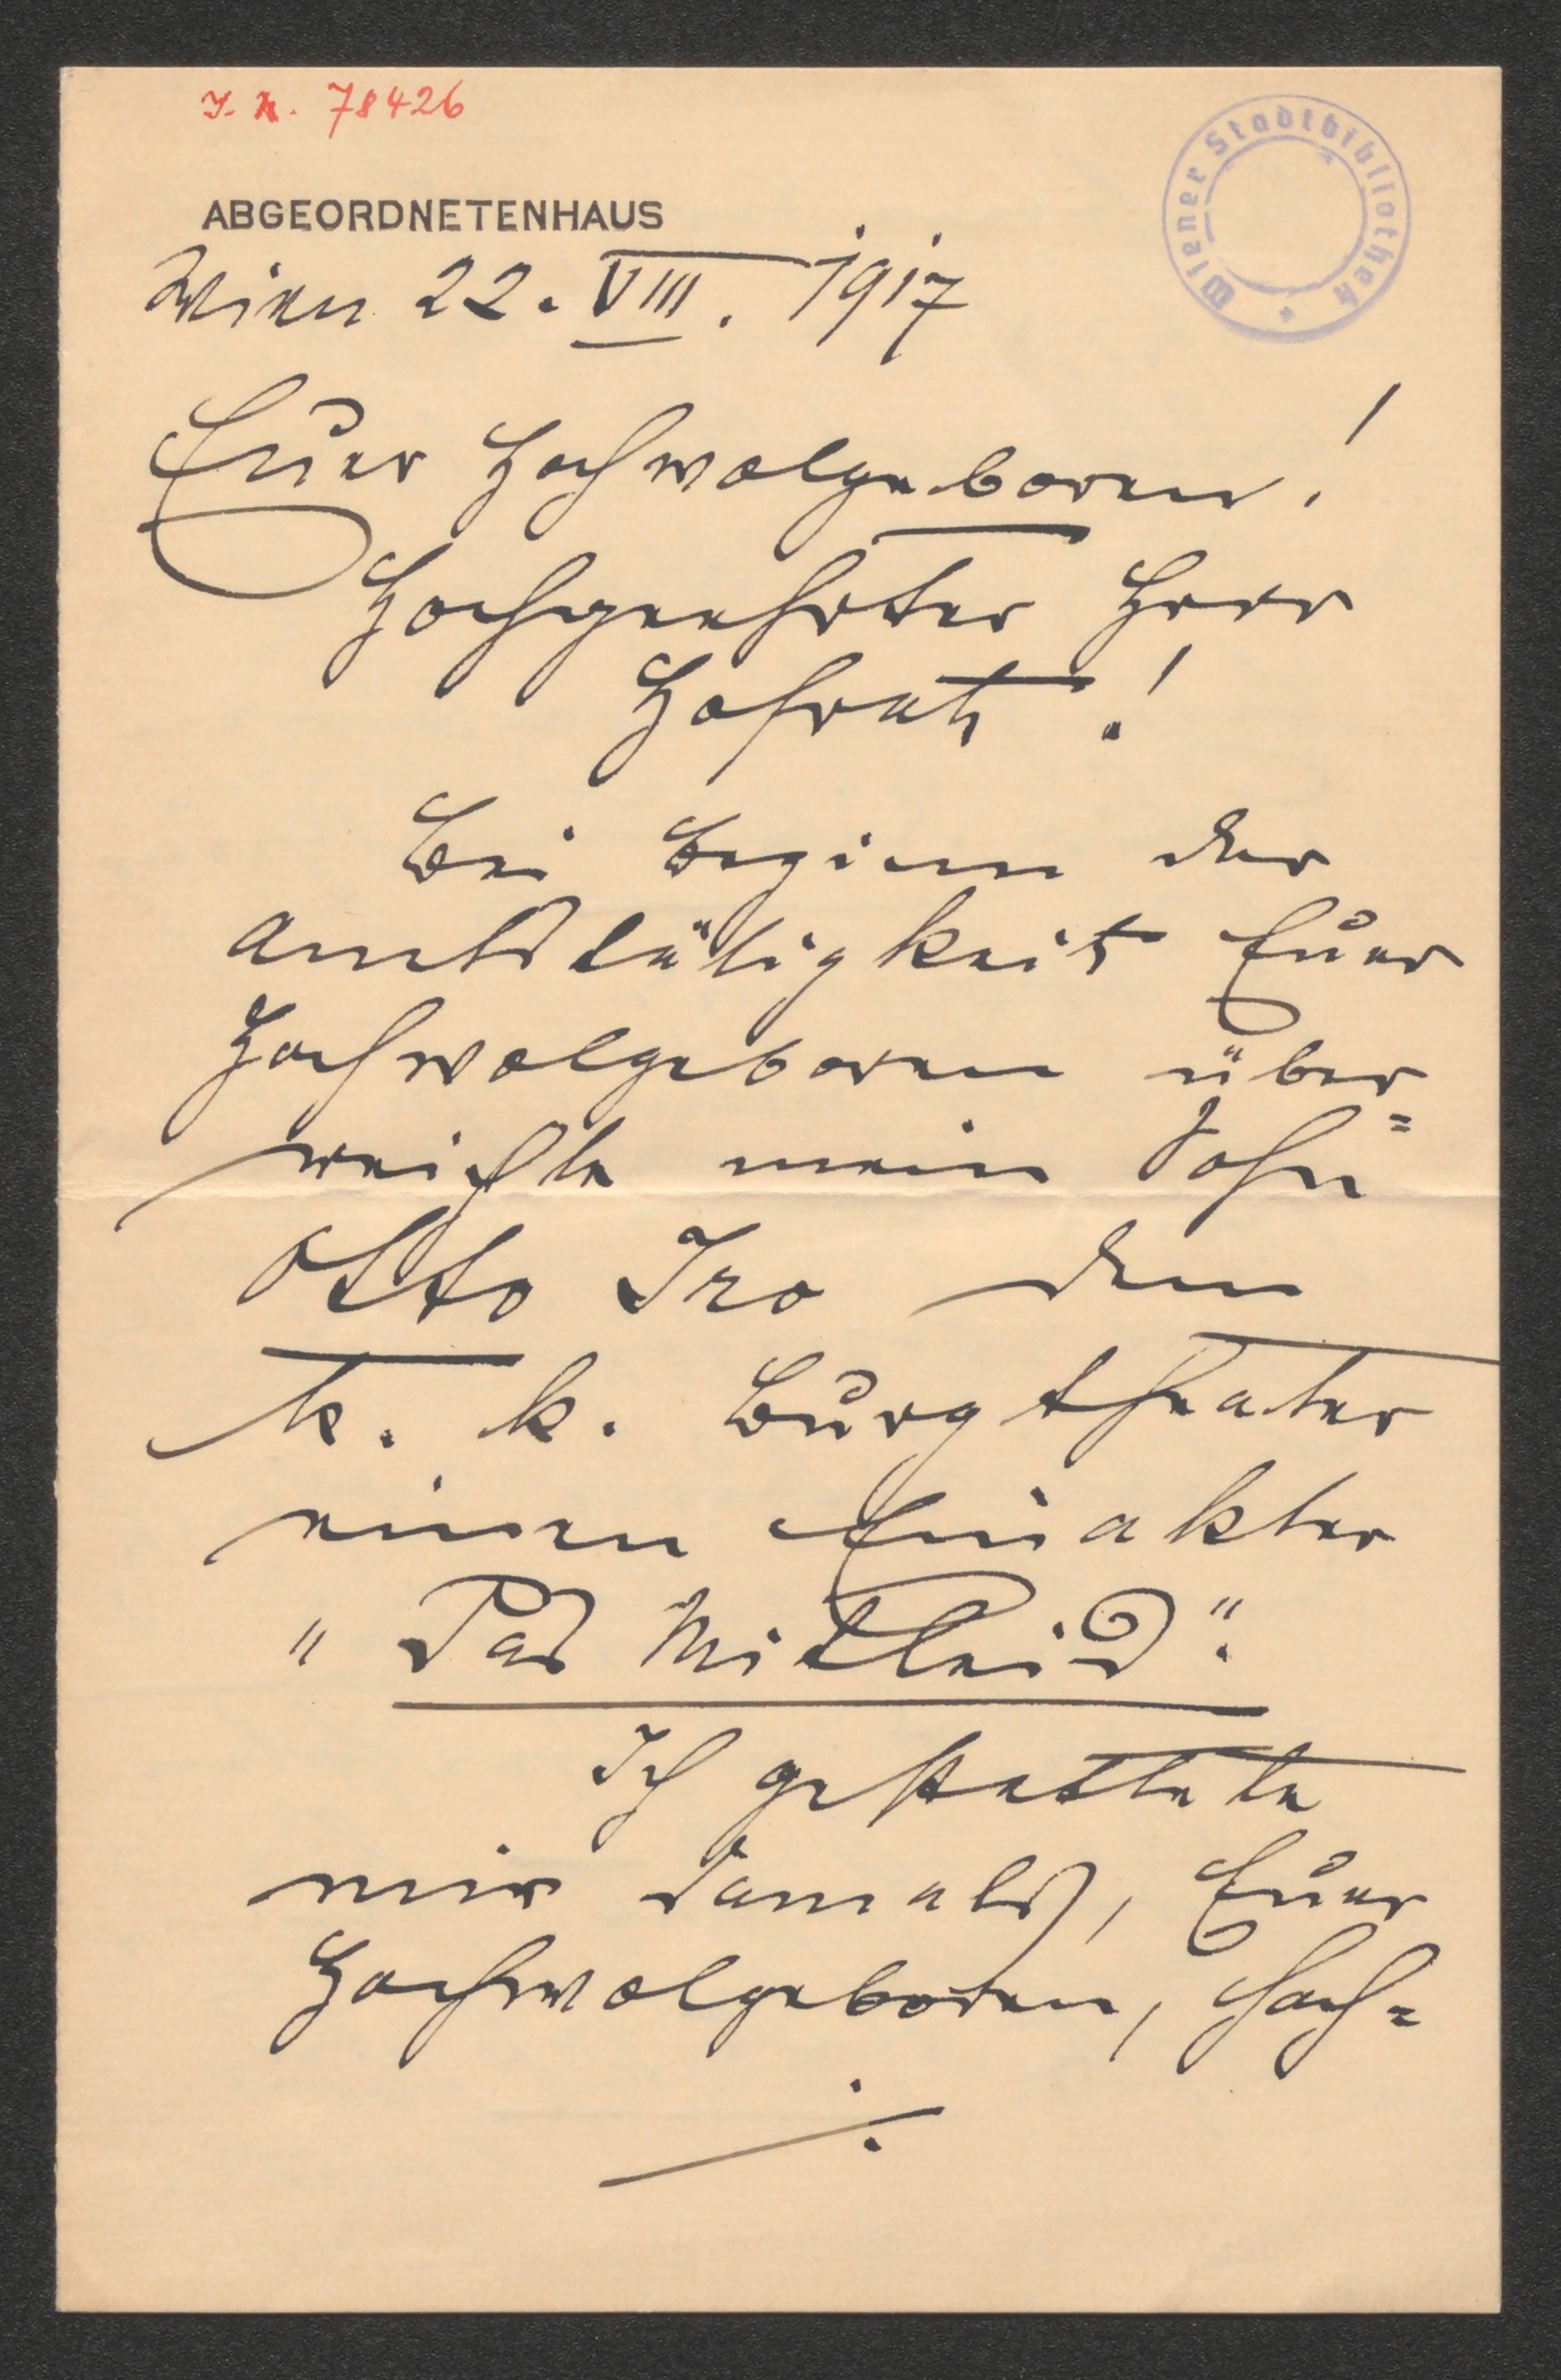 I. N. 78426
Wiener Stadtbibliothek
ABGEORDNETENHAUS
Wien 22. VIII. 1917
Euer Hochwolgeboren!
Hochgeehrter Herr
Hofrath!
Bei Beginn der
Amtstätigkeit Euer
Hochwolgeboren über=
reichte mein Sohn
Otto Iro dem
k. k. Burgtheater
einen Einakter
"Das Mitleid".
Ich gestattete
mir damals, Euer
Hochwolgeboren, hoch=
./.